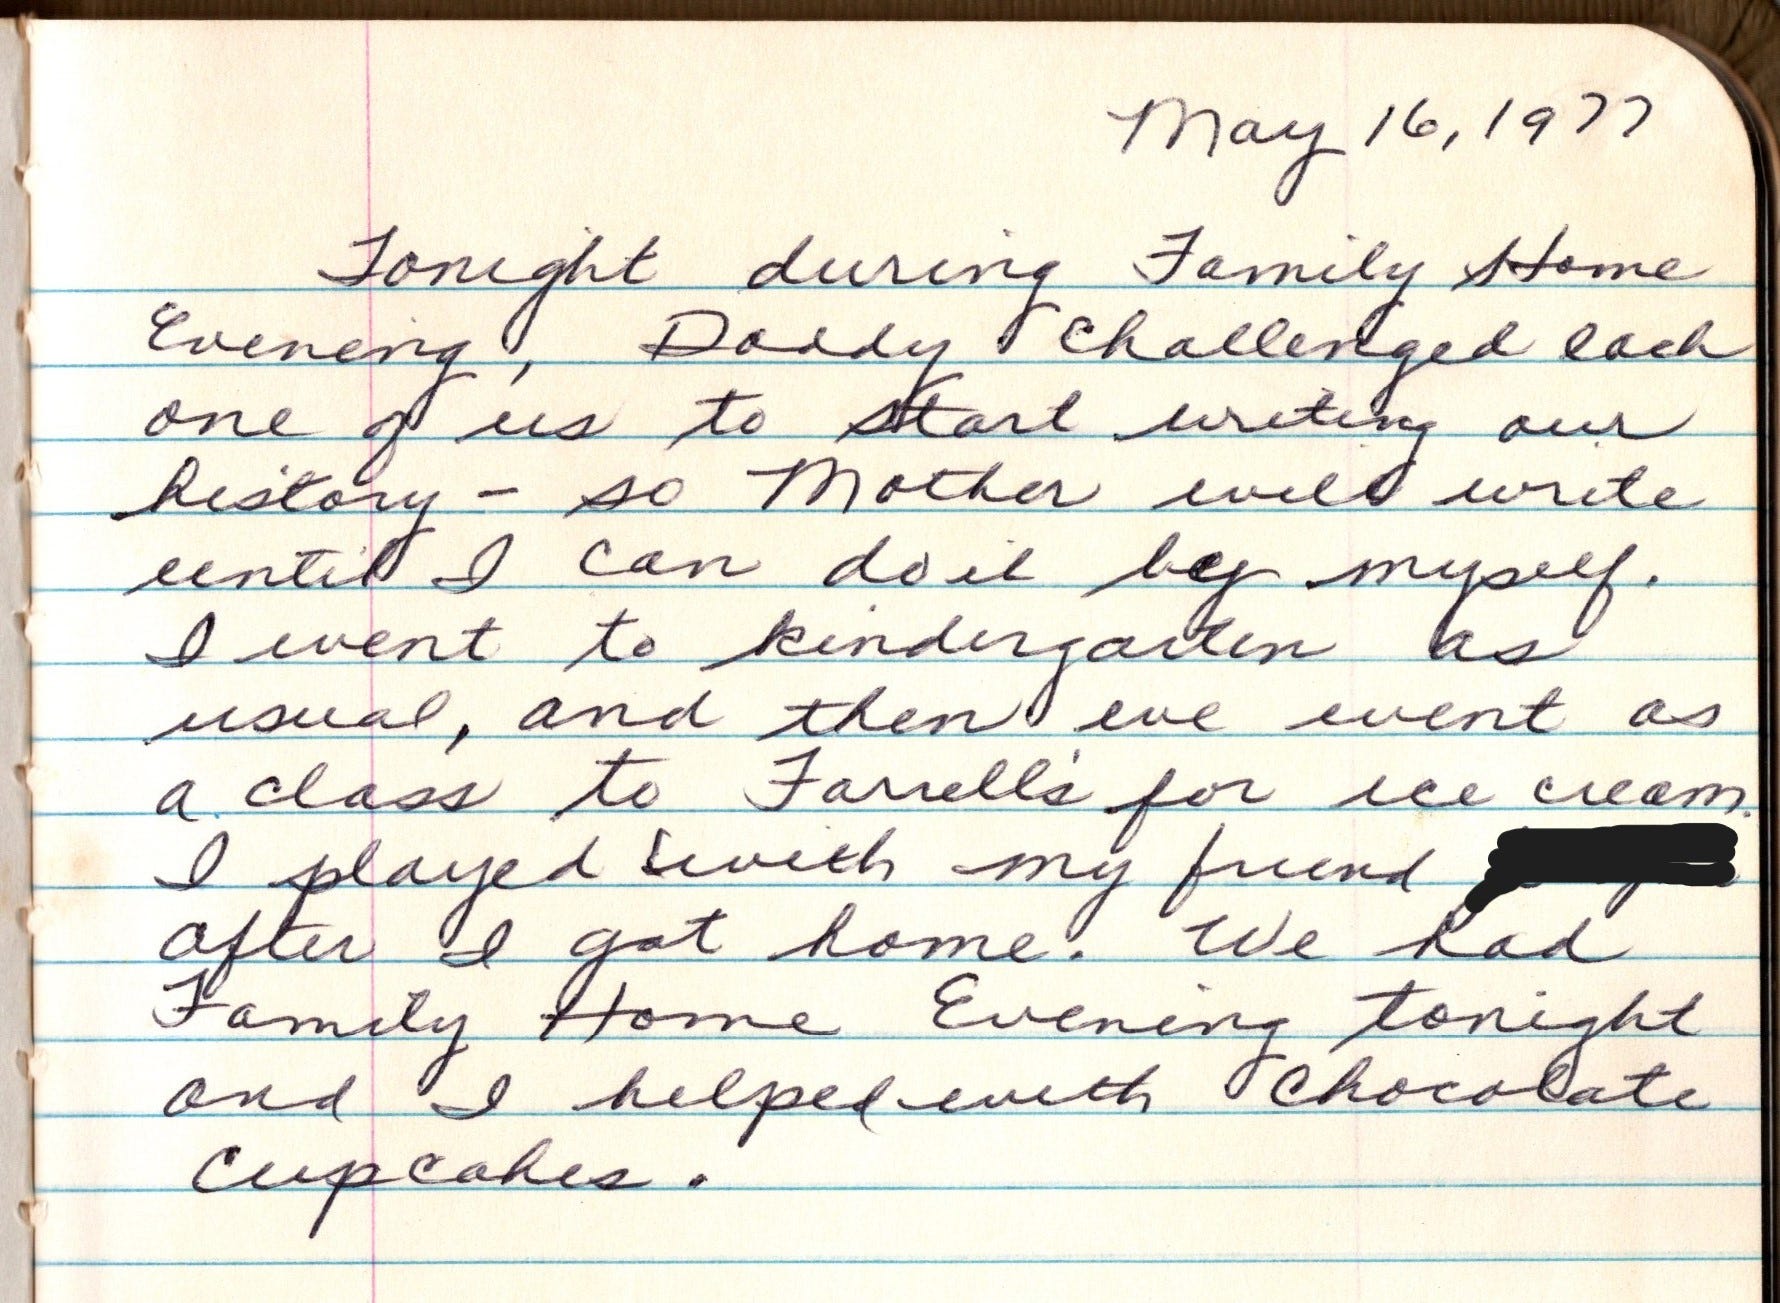 May 16, 1977
Tonight during Family Home
Evening, Daddy challenged each
one of us to start writing our
history - so Mother will write
until I can do it by myself.
I went to kindergarten as
usual, and then we went as
a class to Farrell's for ice cream.
I played with my friend
after I got home. We had
Family Home Evening tonight
and I helped with chocolate
cupcakes.